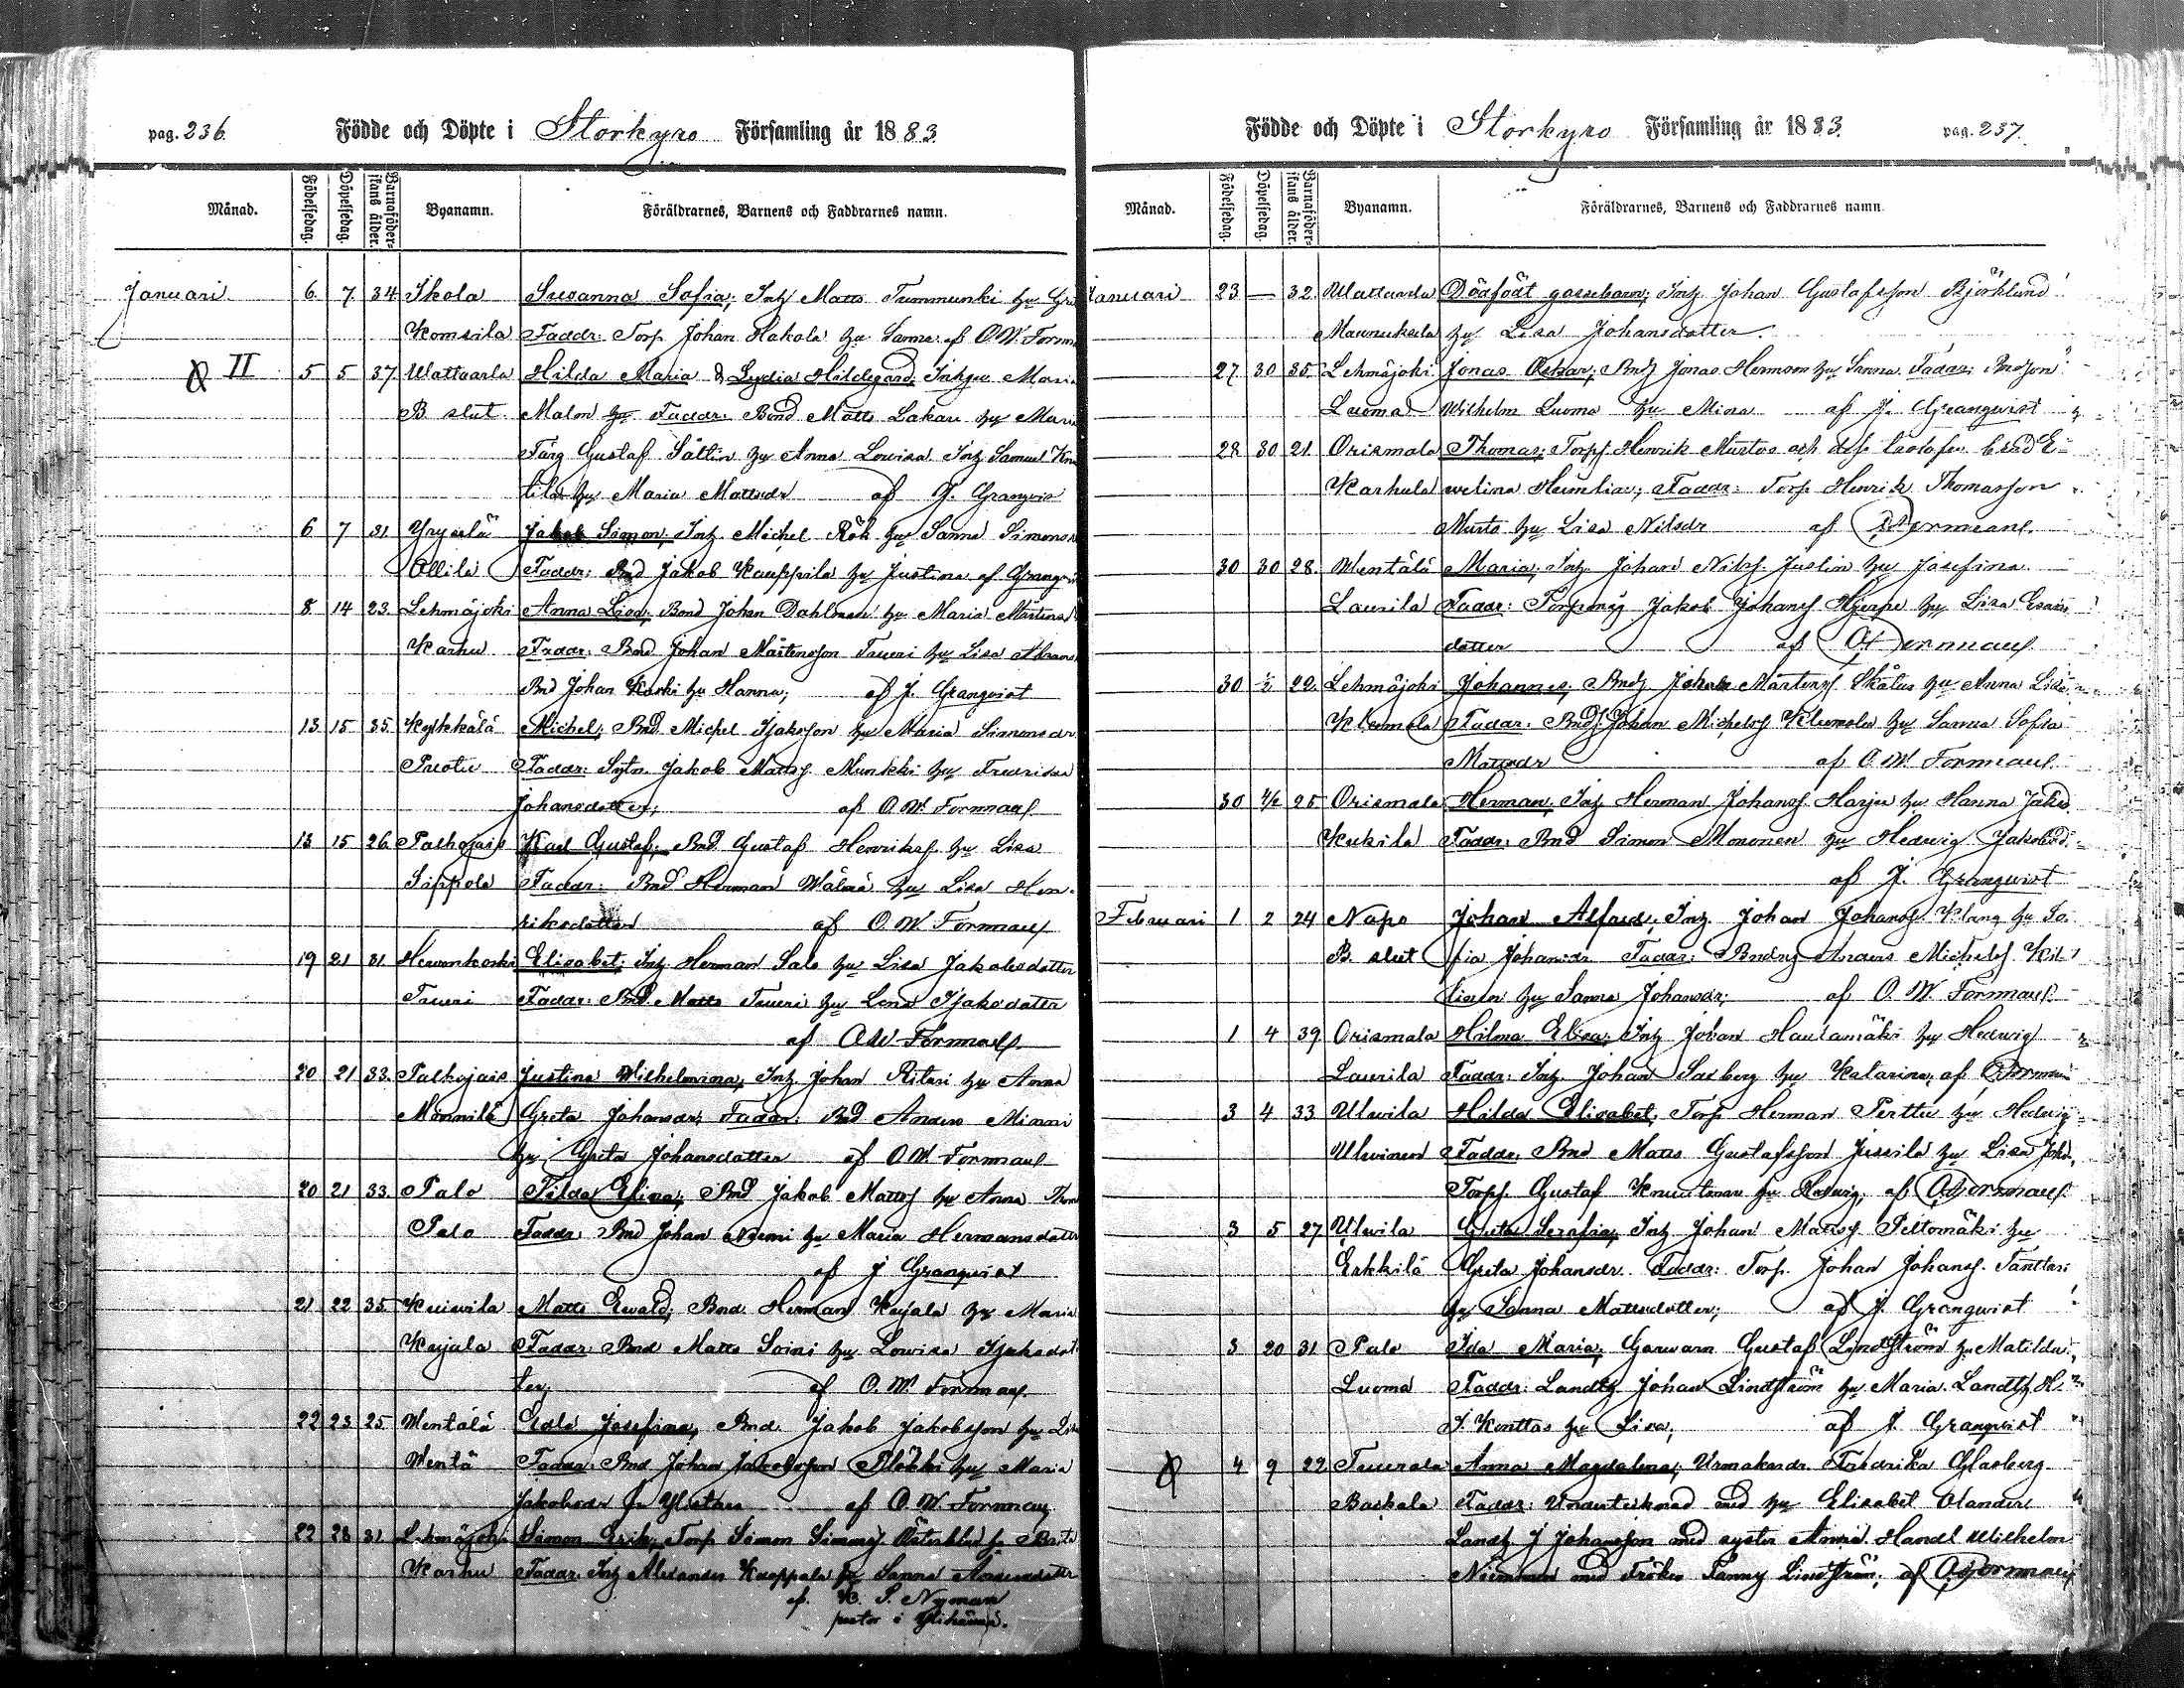 pag. 236.
Födde och Döpte i Storkyro Församling år 1883.
Månad. Födelsedag. Döpelsedag. Barnaföderskans ålder. Byanamn. Föräldrarnes, Barnens och Faddrarnes namn.
Januari 6 7 34 Ikola Susanna Sofia; Inh Matts Tummunki hu
Komsila Faddr: Torp Johan Hakola hu Sanna af O.W. Forsm
II 5 5 37 Wattaarla Hilda Maria & Lydia Hildegard; Inhyse Mari
B slut Malon hu Faddr: Bond Matts Lakari hu Mari
Färg Gustaf Sältin hu Anna Lovisa Inh Samuel
tila hu Maria Mattsdr af J. Granqvis
6 7 31 Yryselä Jakob Simon; Inh. Michel Rök hu Sanna Simons
Ollila Faddr: Bnd Jakob Kauppila hu Justina af Granq
8 14 23 Lehmäjoki Anna Lisa; Bond Johan Dahlman hu Maria Mårtens
Karhu Faddr: Bnd Johan Mårtensson Taueri hu Lisa Abram
Bnd Johan Koski hu Hanna; af J. Granqvist
13 15 35 Kylkkälä Michel; Bnd Michel Isaksson hu Maria Simonsdr
Puotu Faddr: Sytn. Jakob Mattsf. Munkki hu Fredrika
Johansdotter; af O.W. Forsman
13 15 26 Palhojais Karl Gustaf; Bnd Gustaf Henriksf hu Lisa
Sippola Faddr: Bnd Herman Wälmä hu Lisa Hen-
riksdotter af O.W. Forsman
19 21 31 Hevonkoski Elisabet; Inh Herman Salo hu Lisa Jakobsdotter
Taueri Faddr: Bnd Matts Taueri hu Lena Isaksdotter
af O.W. Forsman
20 21 33 Palhojais Justina Wilhelmina; Inh Johan Ritari hu Anna
Mönnilä Greta Johansdr; Faddr: Bnd Anders Minni
hu Greta Johansdotter af O.W. Forsman
20 21 33 Palo Tilda Elina; Bnd Jakob Mattsf hu Anna
Palo Faddr: Bnd Johan Niemi hu Maria Hermansdotter
af J Granqvist
21 22 35 Kuivila Matts Ewald; Bnd Herman Kujala hu Maria
Kujala Faddr Bnd Matts Soini hu Lovisa Isaksdot
ter; af O.W. Forsman
22 23 25 Wentälä Edla Josefina; Bnd. Jakob Jakobsson hu
Wentä Faddr: Bnd Johan Jakobsson hu Maria
Jakobsdr fr Ylistaro af O.W. Forsman
22 28 31 Lehmäjoki Simon Erik; Torp Simon Simonsf Österblad hu Brita
Karhu Faddr. Inh Alexander Kauppala hu Sanna
af K. P. Nyman
pastor i Ylihärmä.
Födde och Döpte i Storkyro Församling år 1883. pag. 237.
Månad. Födelsedag. Döpelsedag. Barnaföderskans ålder. Byanamn. Föräldrarnes, Barnens och Faddrarnes namn.
Januari 23 — 32 Wattaarla Dödfödt gossebarn; Inh Johan Gustafsson Björklund
Maunuksela hu Lisa Johansdotter.
27 30 35 Lehmäjoki Jonas Oskar; Bnd Jonas Hermson hu Sanna Faddr: Bndson
Luoma Wilhelm Luoma hu Mina af J. Granqvist
28 30 21 Orismala Thomas; Torpf. Henrik Murtos och dess hustru E-
Karhula welina; Faddr: Torp Henrik Thomasson
Murto hu Lisa Nilsdr af O.Forsman.
30 30 28 Wentälä Maria; Inh Johan Nilsf Juslin hu Josefina
Laurila Faddr: Torpmåg Jakob Johansf Hjerpe hu Lisa Esaias
dotter af O.Forsman
30 1/2 22 Lehmäjoki Johannes; Bnd Johan Mårtensf Skålus hu Anna Lisa
Kluemola Faddr: Bnd Johan Michelsf Kluemola hu Sanna Sofia
Mattsdr af O.W. Forsman
30 4/2 25 Orismala Herman; Inh Herman Johansf Harju hu Hanna Jakobs
Kukila Faddr: Bnd Simon Mononen hu Hedvig Jakobsd.
af J. Granqvist
Februari 1 2 24 Napo Johan Alfred; Inh Johan Johansf Klang hu So-
B slut fia Johansdr Faddr: Bndmg Anders Michelsf Kil
tinen hu Sanna Johansdr; af O.W. Forsman
1 4 39 Orismala Hilma Elisa; Inh Johan Hautamäki hu Hedvig
Laurila Faddr: Inh Johan Saxberg hu Katarina; af O.Forsman
3 4 33 Ulvila Hilda Elisabet; Torp Herman Perttu hu Hedvig
Ulvinen Faddr: Bnd Matts Gustafsson Jussila hu Lisa
Torpf. Gustaf Knuutman hu Hedvig, af O.Forsman
3 5 27 Ulvila Greta Serafia; Inh Johan Mattsf Peltomäki hu
Erkkilä Greta Johansdr Faddr: Torp Johan Johansf. Tänttäri
hu Sanna Mattsdotter; af J. Granqvist
3 20 31 Palo Ida Maria; Garwarn Gustaf Lindström hu Matilda;
Luoma Faddr: Landth Johan Lindström hu Maria. Landth H.
J. Konttas hu Lisa; af J. Granqvist
4 9 22 Tuurala Anna Magdalena; Urmakaredr Fredrika Glasberg
Backala Faddr: Undertecknad med hu Elisabet Olander
Landth J Johansson med syster Anna Handl Wilhelm
Nieminen med Fröken Fanny Lindström; af O.Forsman